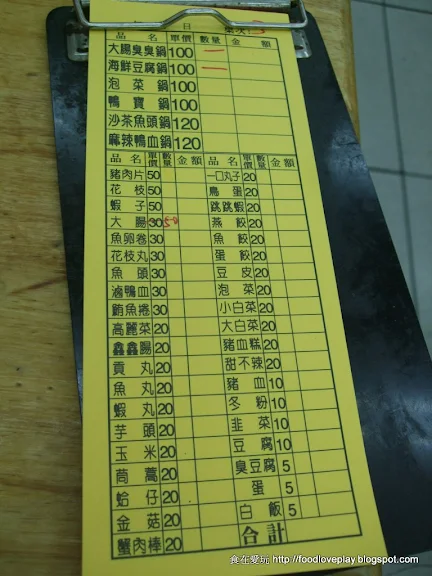 日 桌次 3
品名 單價 數量 金額
大腸臭臭鍋 100 一
海鮮豆腐鍋 100 一
泡菜鍋 100
鴨寶鍋 100
沙茶魚頭鍋 120
麻辣鴨血鍋 120
品名 單價 數量 金額 品名 單價 數量 金額
豬肉片 50 一口丸子 20
花枝 50 鳥蛋 20
蝦子 50 跳跳蝦 20
大腸 30 50 燕餃 20
魚卵卷 30 魚餃 20
花枝丸 30 蛋餃 20
魚頭 30 豆皮 20
滷鴨血 30 泡菜 20
鮪魚捲 30 小白菜 20
高麗菜 20 大白菜 20
鑫鑫腸 20 豬血糕 20
貢丸 20 甜不辣 20
魚丸 20 豬血 10
蝦丸 20 冬粉 10
芋頭 20 韭菜 10
玉米 20 豆腐 10
茼蒿 20 臭豆腐 5
蛤仔 20 蛋 5
金菇 20 白飯 5
蟹肉棒 20 合計
食在愛玩 http://foodloveplay.blogspot.com/